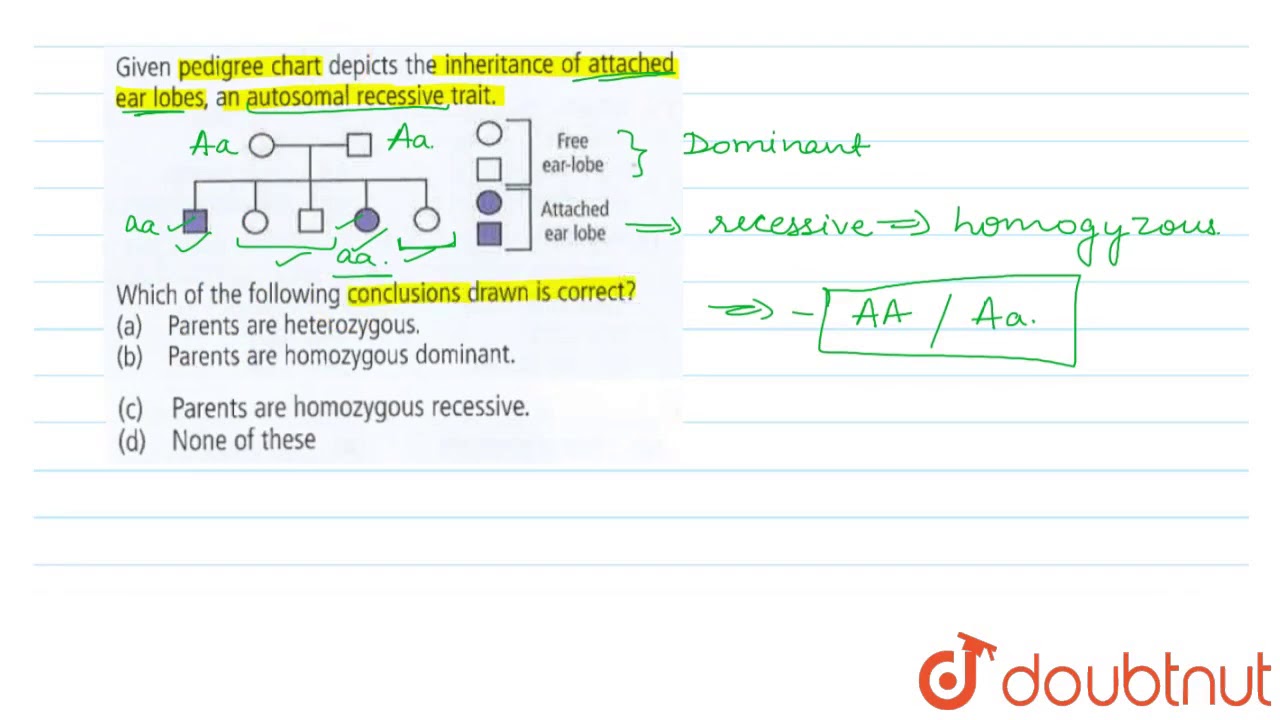 Given pedigree chart depicts the inheritance of attached
ear lobes, an autosomal recessive trait.
Aa
Aa.
Free
ear-lobe
Dominant
aa
aa.
Attached
ear lobe
⇒ recessive ⇒ homogyzous.
Which of the following conclusions drawn is correct?
⇒ - AA / Aa.
(a) Parents are heterozygous.
(b) Parents are homozygous dominant.
(c) Parents are homozygous recessive.
(d) None of these
doubtnut